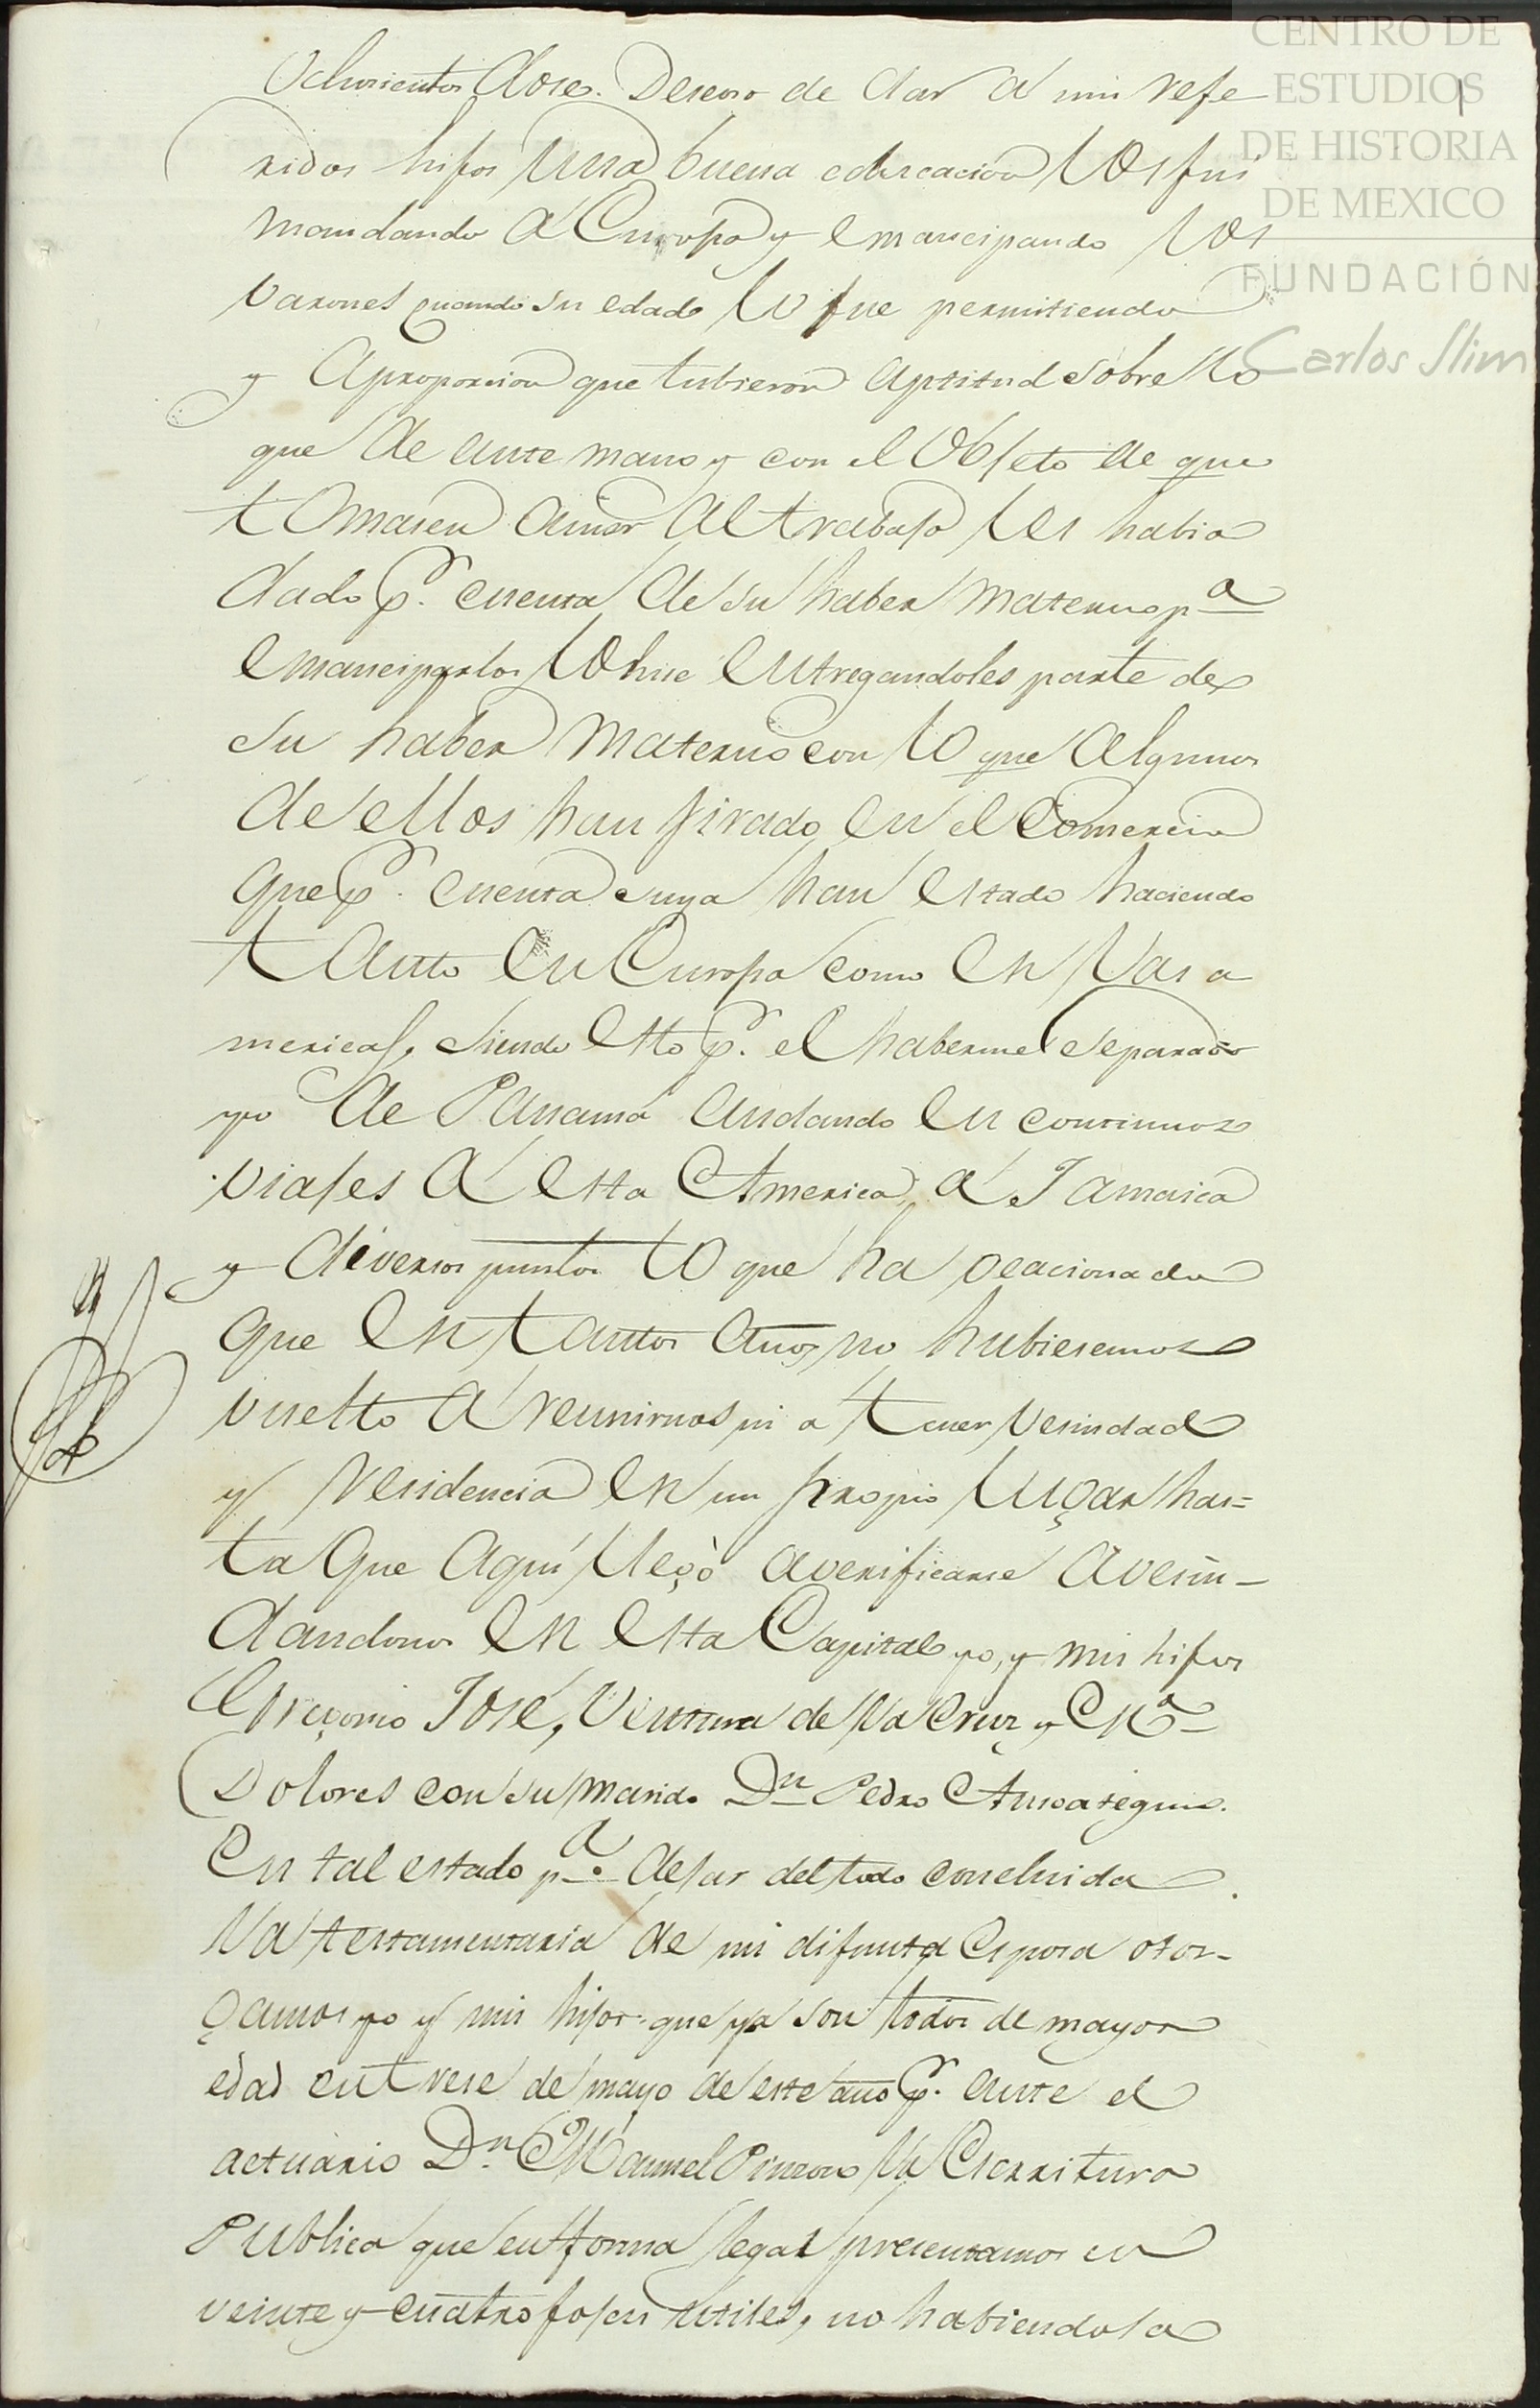 CENTRO DE
ESTUDIOS
DE HISTORIA
DE MEXICO
FUNDACIÓN
Carlos Slim
Ochosientos dose. Deseoso de dar á mis refe
ridos hijos una buena educacion los fui
mandando á Europa y emancipando los
varones quando su edad lo fue permitiendo
y aproporcion que tubieron aptitud sobre lo
que de ante mano y con el objeto de que
tomasen amor al trabajo les habia
dado p.r cuenta de su haber materno p.a
emanciparlos, lo hise entregandoles parte de
su haber materno con lo que algunos
de ellos han jirado en el comercio
que p.r cuenta suya han estado haciendo
tanto en Europa como en las a
mericas, siendo esto p.r el haberme separado
yo de Panamá andando en continuos
viajes á esta America, á Jamaica
y diversos puntos lo que ha ocacionado
que en tantos años no hubiesemos
vuelto á reunirnos ni a tener vesindad
y residencia en un propio lugar has=
ta que aqui llegò averificarse avesin-
dandonos en esta Capital yo, y mis hijos
Gregorio José, Ventura de la Cruz y M.a
Dolores con su marido D.n Pedro
En tal estado p.a dejar del todo concluida
la testamentaria de mi difunta Esposa otor-
gamos yo y mis hijos que ya son todos de mayor
edad en trese de mayo de este año p.r ante el
actuario D.n Manuel Pinzon la Escritura
Publica que en forma legal presentamos en
veinte y cuatro fojas utiles, no habiendola